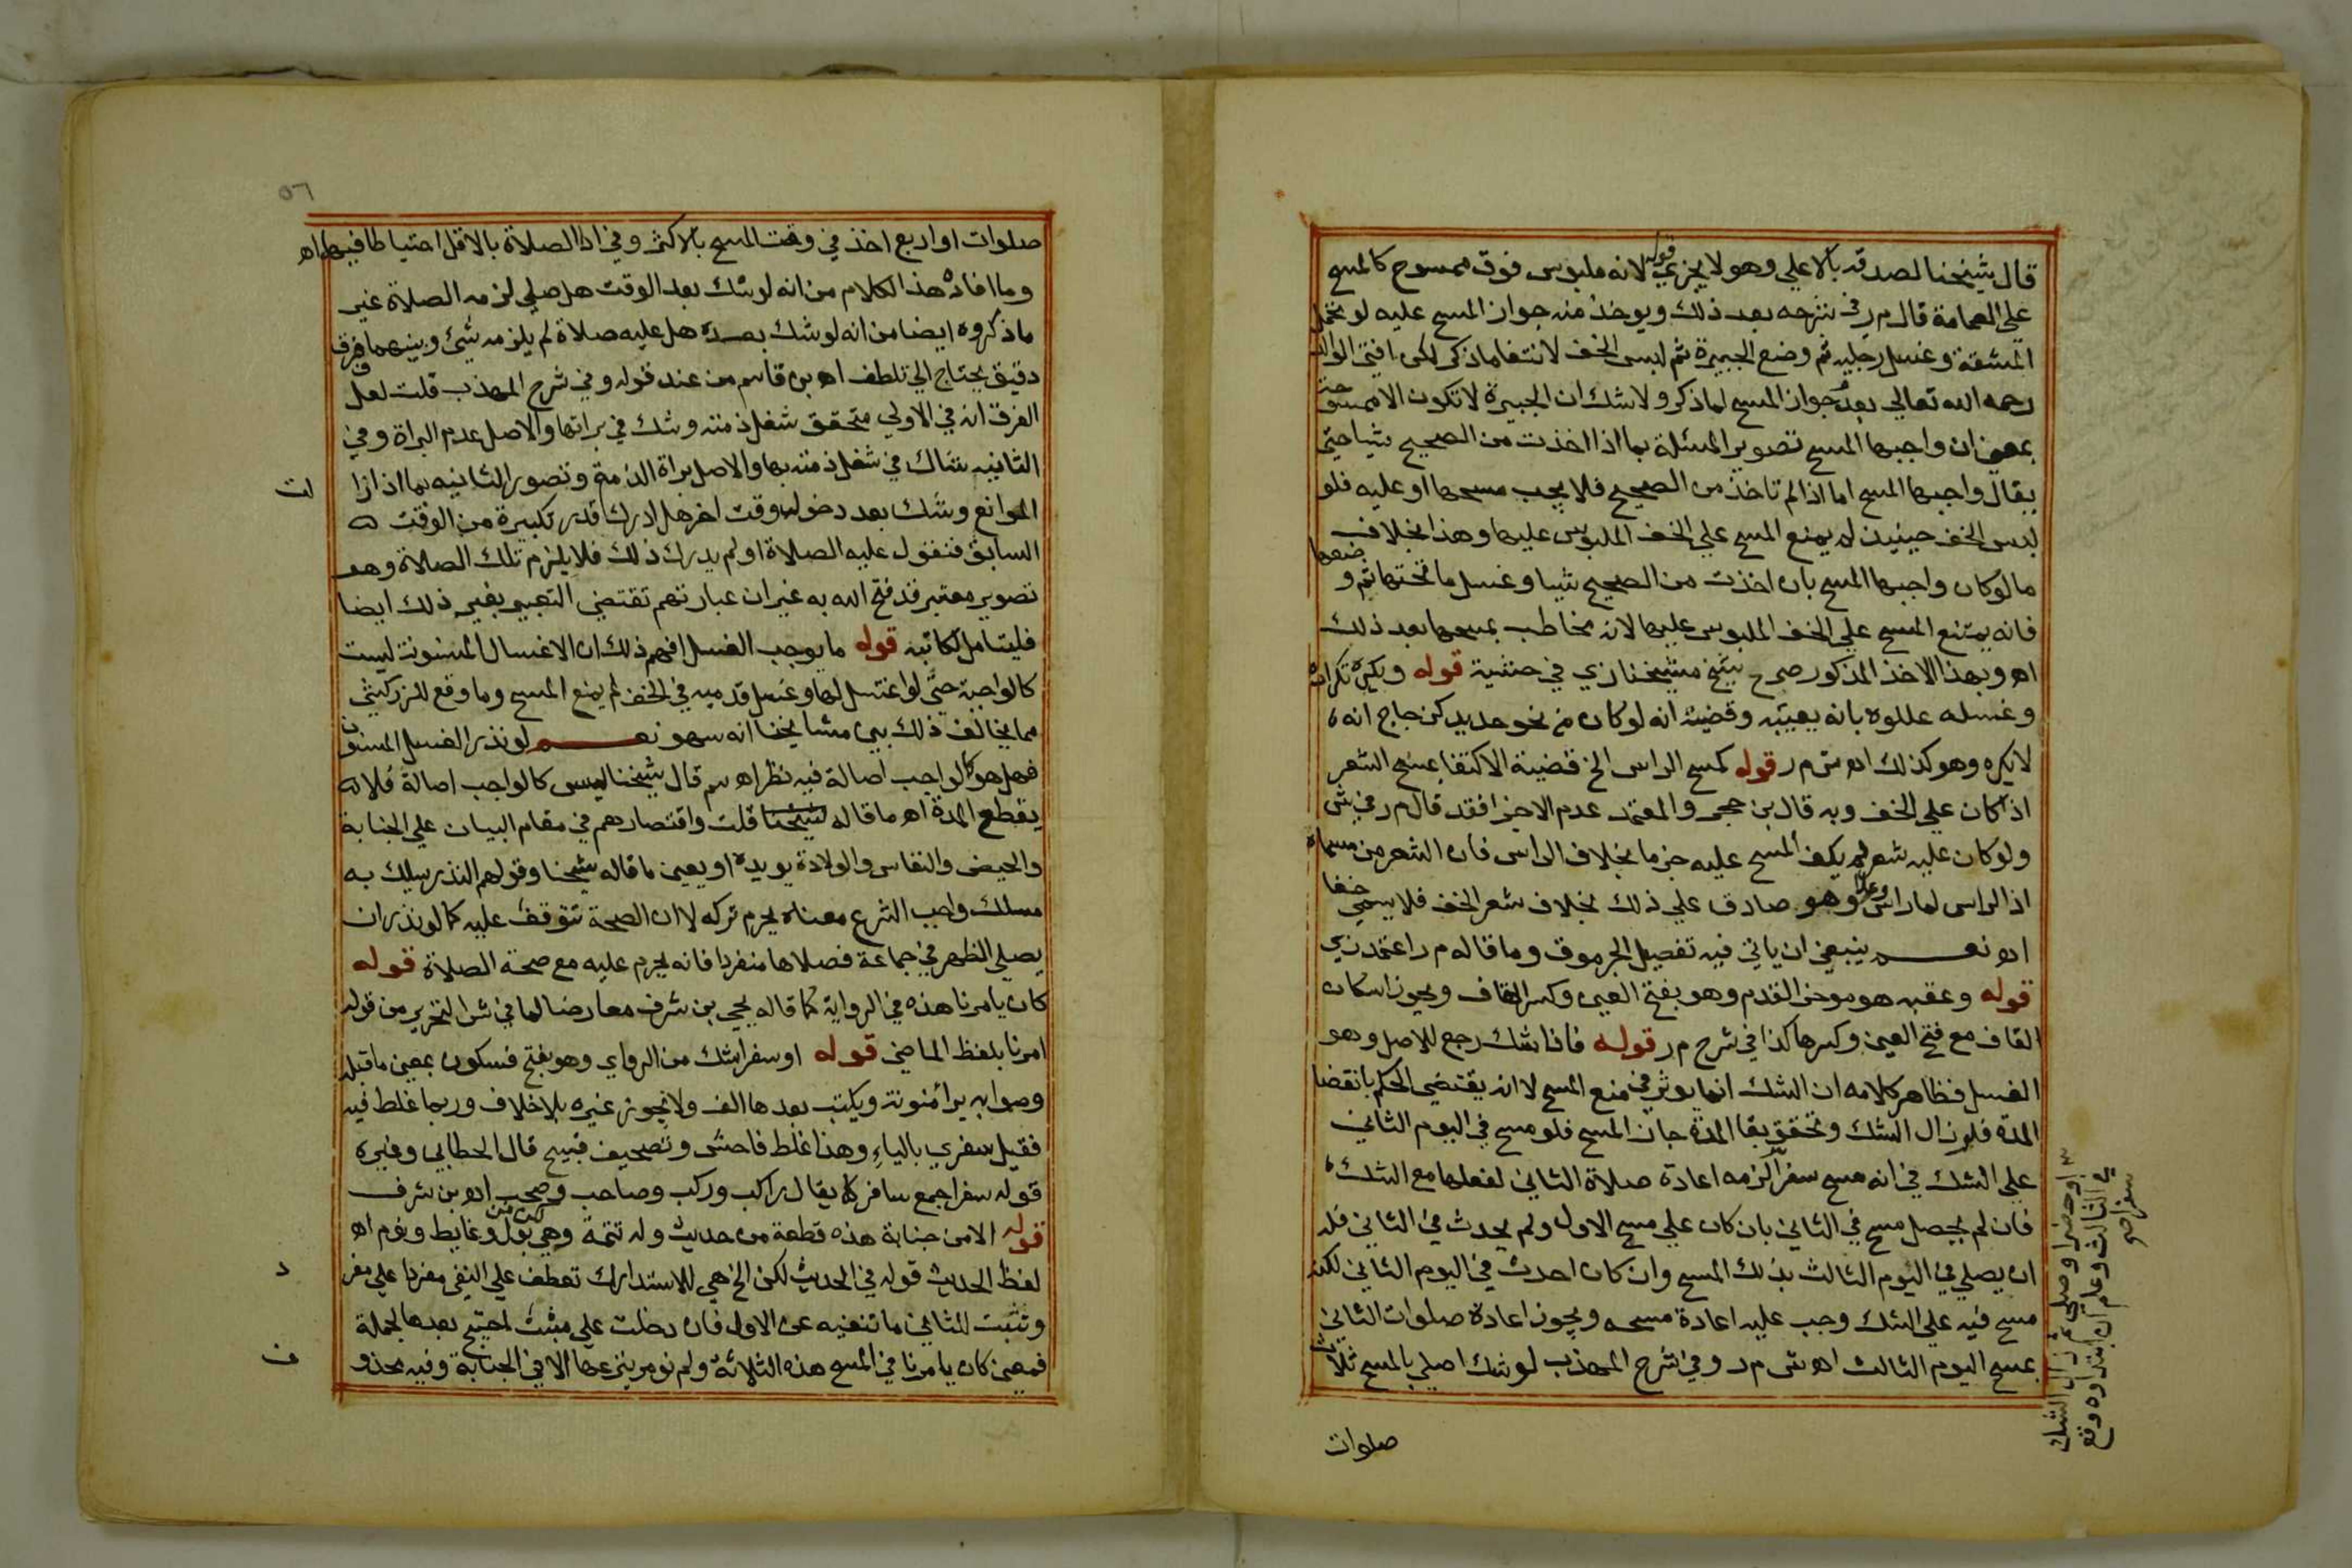 قال شيخنا لصدقه بالاعلي وهو لا يجزي قوله لانه ملبوس فوق ممسوح كالمسح
علي العمامة قال م ر في شرحه بعد ذلك ويوخذ منه جواز المسح عليه لو تحمل
المشقة وغسل رجليه ثم وضع الجبيرة ثم لبس الخف لانتفا ماذكر لكن افتي الوالد
رحمه الله تعالي بعدم جواز المسح لما ذكر ولا شك ان الجبيرة لا تكون الا ممسوحة
بمعني ان واجبها المسح تصوير المسئلة بما اذا اخذت من الصحيح شيا حتي
يقال واجبها المسح اما اذا لم تاخذ من الصحيح فلا يجب مسحها او عليه فلو
لبس الخف حينيذ لم يمنع المسح علي الخف الملبوس عليها وهذا بخلاف
ما لو كان واجبها المسح بان اخذت من الصحيح شيا وغسل ما تحتها ثم وضعها
فانه يمتنع المسح علي الخف الملبوس عليها لانه مخاطب بمسحها بعد ذلك
اه وبهذا الاخذ المذكور صرح شيخ مشيخنا زي في حشية قوله ويكره تكراره
وغسله عللوه بانه يعيبه وقضيته انه لو كان من نحو حديد كزجاج انه
لا يكره وهو كذلك اه ش م ر قوله كمسح الراس الخ قضية الاكتفا بمسح الشعر
اذا كان علي الخف وبه قال بن حجر والمعتمد عدم الاجزا فقد قال م ر في ش
ولو كان عليه شعر لم يكف المسح عليه جزما بخلاف الراس فان الشعر من مسماه
اذ الراس لما راس وعلا وهو صادق علي ذلك بخلاف شعر الخف فلا يسمي خفا
اه نعم ينبغي ان ياتي فيه تفصيل الجرموق وما قاله م ر اعتمده زي
قوله وعقبه هو موخر القدم وهو بفتح العين وكسر القاف ويجوز اسكان
القاف مع فتح العين وكسرها كذا في شرح م ر قوله فاذا شك رجع للاصل وهو
الغسل فظاهر كلامه ان الشك انما يوثر في منع المسح لا انه يقتضي الحكم بانقضا
المدة فلو زال الشك وتحقق بقا المدة جاز المسح فلو مسح في اليوم الثاني
علي الشك في انه مسح سفرا لزمه اعادة صلاة الثاني لفعلها مع الشك
فان لم يحصل مسح في الثاني بان كان علي مسح الاول ولم يحدث في الثاني فله
ان يصلي في اليوم الثالث بذلك المسح وان كان احدث في اليوم الثاني لكنه
مسح فيه علي الشك وجب عليه اعادة مسحه ويجوز اعادة صلوات الثاني
بمسح اليوم الثالث اه ش م ر وفي شرح المهذب لو شك اصلي بالمسح ثلاث
صلوات
او حضرا وصلي ثم زال الشك
في الثالث وعلم ان ابتداوه وقع
سفرا صح
٥٦
صلوات او اربع اخذ في وقت المسح بالاكثر وفي ادا الصلاة بالاقل احتياطا فيهما اه
وما افاده هذا الكلام من انه لو شك بعد الوقت هل صلي لزمه الصلاة غير
ما ذكروه ايضا من انه لو شك بعده هل عليه صلاة لم يلزمه شيئ وبينهما فرق
دقيق يحتاج الي تلطف اه بن قاسم من عند قوله وفي شرح المهذب قلت لعل
الفرق انه في الاولي متحقق شغل ذمته وشك في براتها والاصل عدم البراة وفي
الثانيه شاك في شغل ذمته بها والاصل براة الذمة وتصور الثانيه بما اذا زا
لت
الموانع وشك بعد دخول وقت اخر هل ادرك قدر تكبيرة من الوقت
السابق فنقول عليه الصلاة او لم يدرك ذلك فلا يلزم تلك الصلاة وهو
تصوير معتبر قد فتح الله به غير ان عبارتهم تقتضي التعبير بغير ذلك ايضا
فليتامل لكاتبه قوله ما يوجب الغسل افهم ذلك ان الاغسال المسنونة ليست
كالواجبة حتي لو اغتسل لها وغسل قدميه في الخف لم يمنع المسح وما وقع للزركشي
مما يخالف ذلك بين مشايخنا انه سهو نعم لو نذر الغسل المسنون
فهل هو كالواجب اصالة فيه نظر اه سم قال شيخنا ليس كالواجب اصالة فلا
يقطع المدة اه ما قاله شيخنا قلت واقتصارهم في مقام البيان علي الجنابة
والحيض والنفاس والولادة يويده او يعين ما قاله شيخنا وقولهم النذر يسلك به
مسلك واجب الشرع معناه يحرم تركه لا ان الصحة تتوقف عليه كما لو نذر ان
يصلي الظهر في جماعة فصلاها منفردا فانه يحرم عليه مع صحة الصلاة قوله
كان يامرنا هذه في الرواية كما قاله يحيي بن شرف معارضا لما في ش التحرير من قوله
امرنا بلفظ الماضي قوله او سفرا شك من الراوي وهو بفتح فسكون بمعني ما قبله
وصوابه براء منونة ويكتب بعدها الف ولا يجوز غيره بلا خلاف وربما غلط فيه
فقيل سفري بالياء وهذا غلط فاحش وتصحيف قبيح قال الخطابي وغيره
قوله سفرا جمع سافر كما يقال راكب وركب وصاحب وصحب اه بن شرف
قوله الا من جنابة هذه قطعة من حديث وله تتمة وهي لكن من بول وغايط ونوم اه
لفظ الحديث قوله في الحديث لكن الخ هي للاستدراك تعطف علي النفي مفردا علي مفر
د
وتثبت للثاني ما تنفيه عن الاول فان دخلت علي مثبت احتيج بعدها لجملة
فمعني كان يامرنا في المسح هذه الثلاثة ولم نومر بنزعها الا في الجنابة وفيه محذو
ف